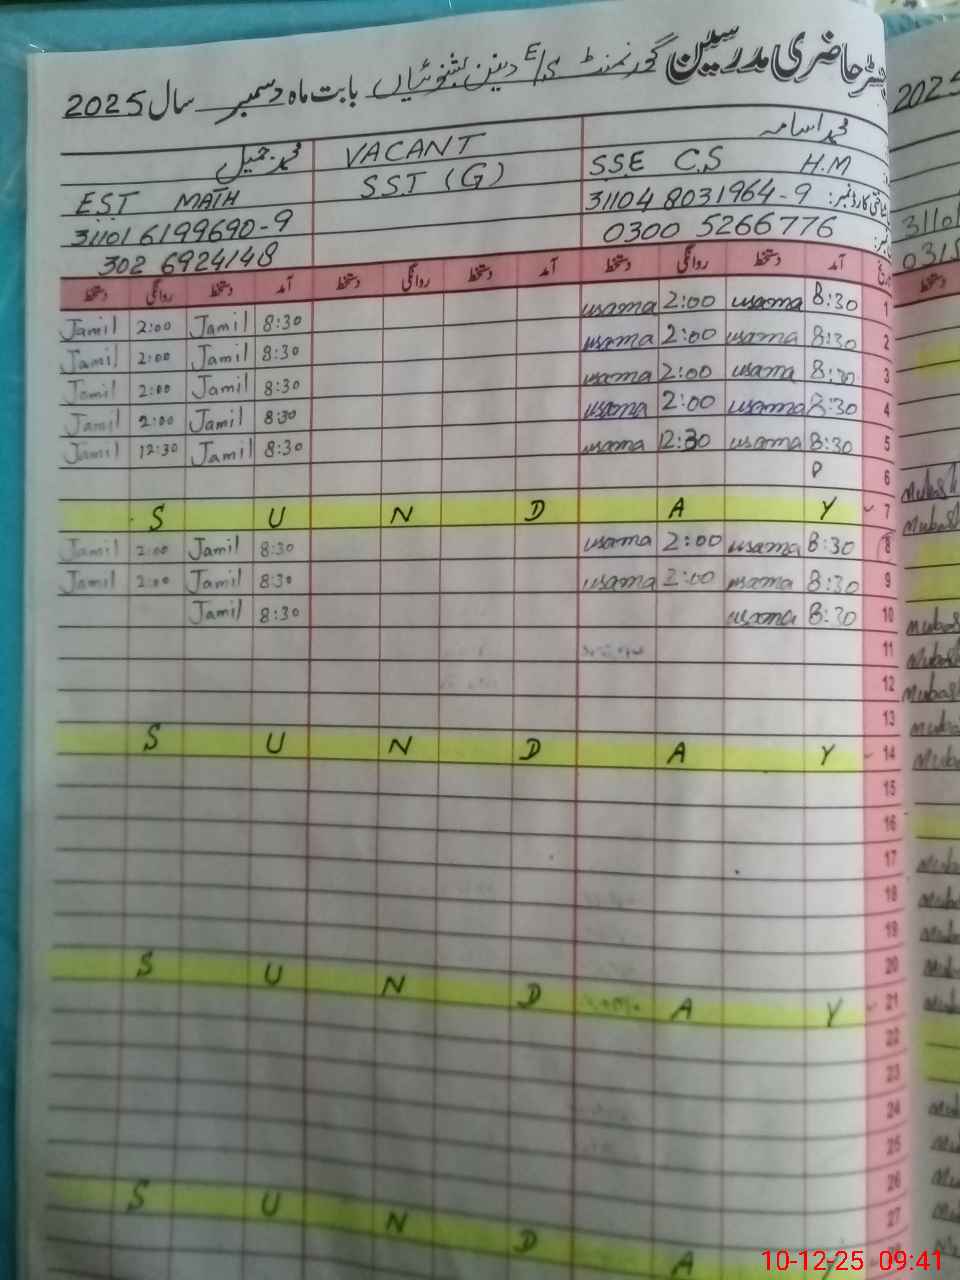 رجسٹر حاضری مدرسین گورنمنٹ E/S دینن بشنوئیاں بابت ماہ دسمبر سال 2025
محمد اسامہ VACANT محمد جمیل
SSE C.S H.M SST (G) EST MATH
شناختی کارڈ نمبر: 31104 8031964-9 31101 6199690-9
0300 5266776 302 6924148
آمد دستخط روانگی دستخط آمد دستخط روانگی دستخط آمد دستخط روانگی دستخط
1 8:30 usama 2:00 usama 8:30 Jamil 2:00 Jamil
2 8:30 usama 2:00 usama 8:30 Jamil 2:00 Jamil
3 8:30 usama 2:00 usama 8:30 Jamil 2:00 Jamil
4 8:30 usama 2:00 usama 8:30 Jamil 2:00 Jamil
5 8:30 usama 12:30 usama 8:30 Jamil 12:30 Jamil
6 P
S U N D A Y 7
8 8:30 usama 2:00 usama 8:30 Jamil 2:00 Jamil
9 8:30 usama 2:00 usama 8:30 Jamil 2:00 Jamil
10 8:30 usama 8:30 Jamil
11
12
13
S U N D A Y 14
15
16
17
18
19
20
S U N D A Y 21
22
23
24
25
26
27
S U N D A Y 28
2025
31101
دستخط
10-12-25 09:41